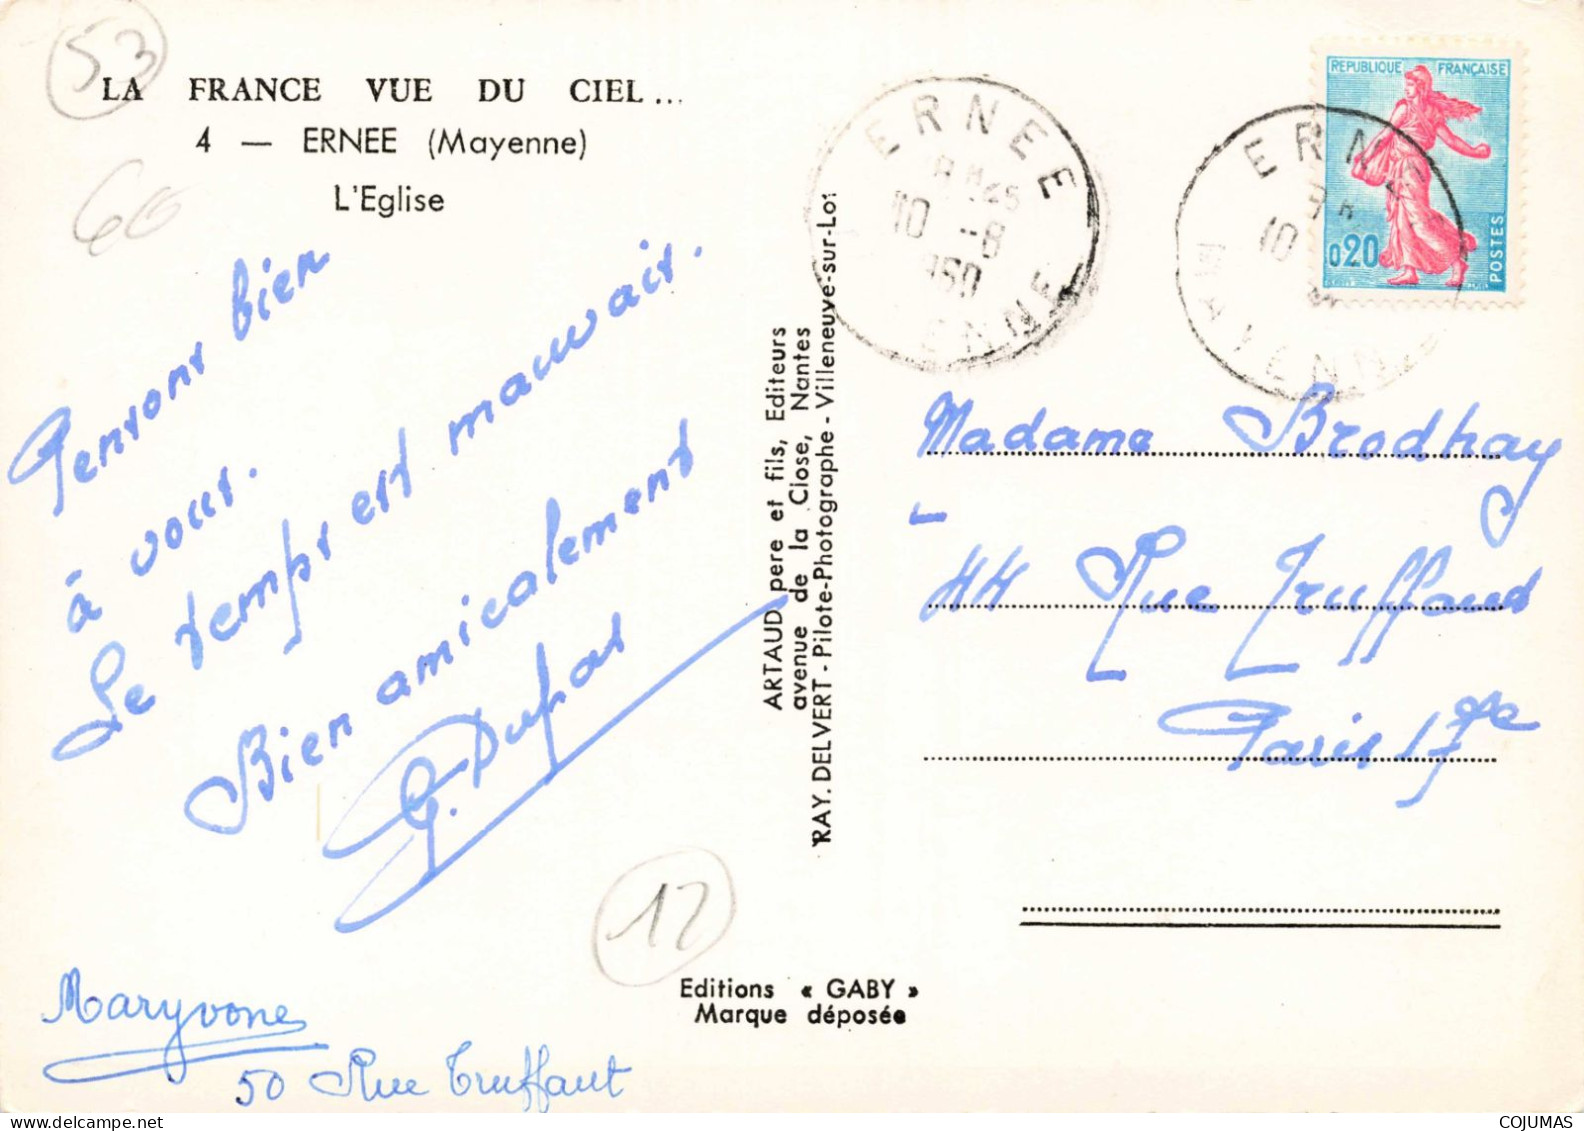 53
LA FRANCE VUE DU CIEL...
4 — ERNEE (Mayenne)
L'Eglise
60
Pensons bien
à vous.
Le temps est mauvais.
Bien amicalement
G. Dupas
Maryvone
50 Rue Truffaut
12
Editions « GABY »
Marque déposée
ARTAUD pere et fils, Editeurs
avenue de la Close, Nantes
RAY. DELVERT - Pilote-Photographe - Villeneuve-sur-Lot
ERNEE
10 -8
1960
MAYENNE
REPUBLIQUE FRANÇAISE
0,20
POSTES
Madame Brodhay
44 Rue Truffaud
Paris 17e
COJUMAS